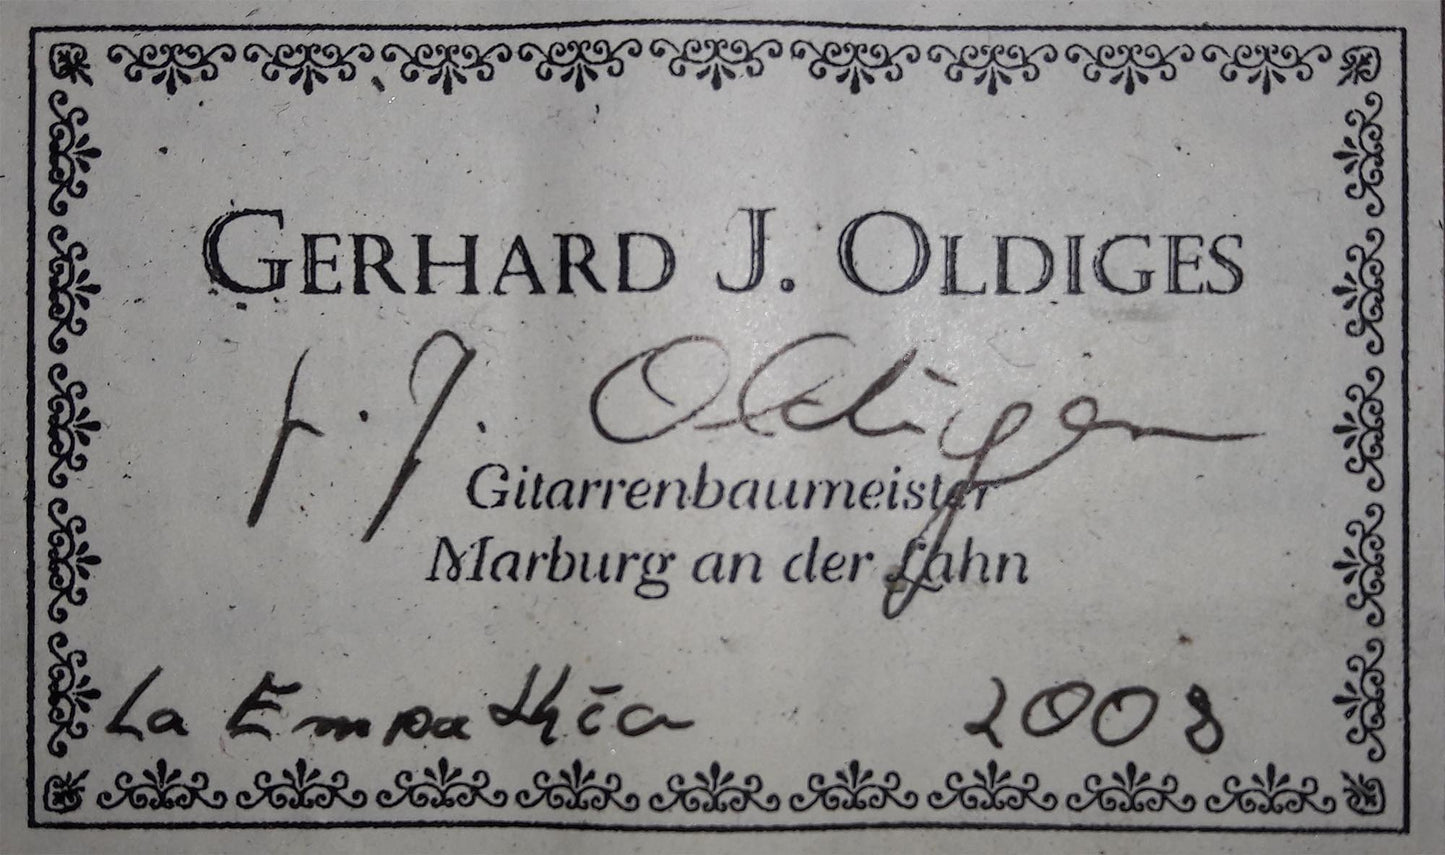 GERHARD J. OLDIGES
G. J. Oldiges
Gitarrenbaumeister
Marburg an der Lahn
La Empathia 2008